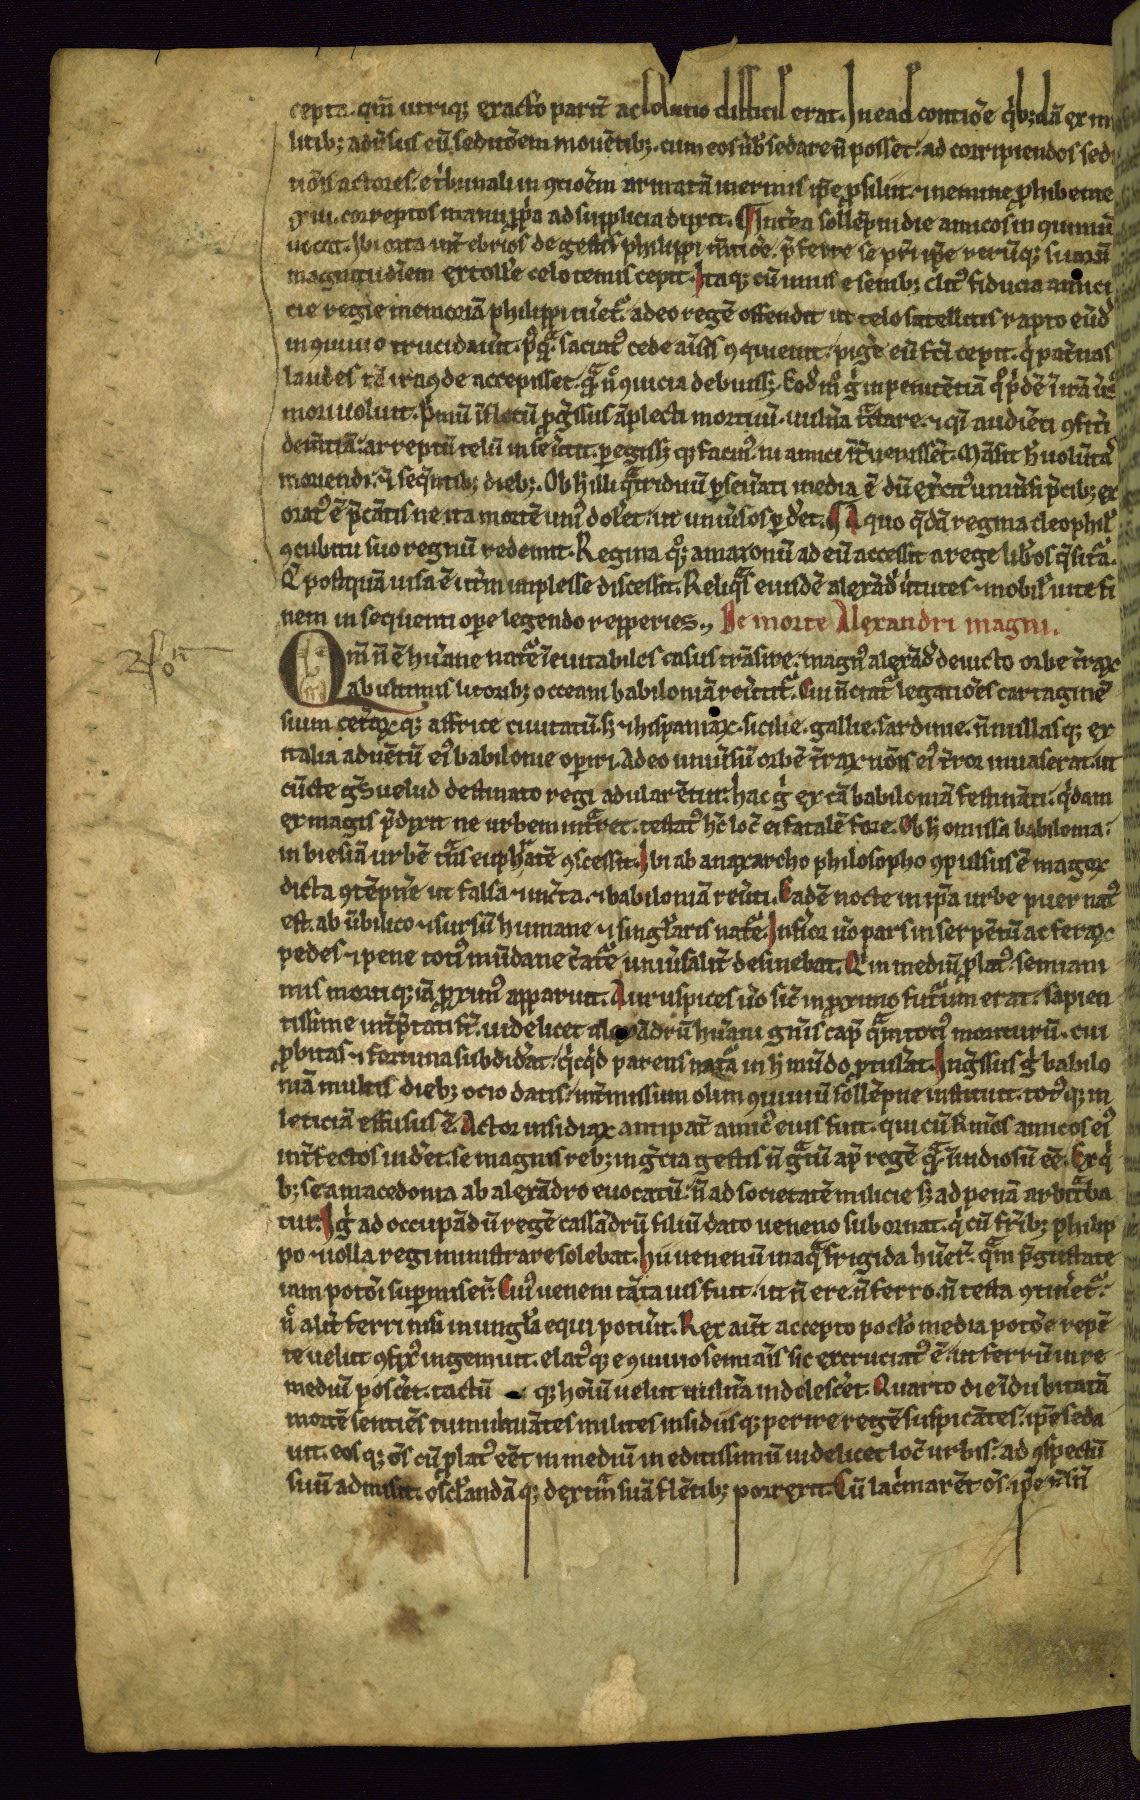 cepta. qm̄ utriq; exacto parit̄ ac solutio difficil erat. In ea d contiōe q̇b;dā ex mi
litib; aduersus eū seditōem mouētib;. cum eos ūbˢ sedare n̄ posset. ad corripiendos sedi
tiōis actores. e tribunali in ꝯtiōem armatā inermis ip̄e ꝓsiliit. ⁊ nemine ꝓhibente
xiii. correptos manu ꝓpͥa ad supplicia duxit. ¶ Int̄ea sollēpni die amicos in ꝯuiuiū
uocat. Ibi orta int̄ ebrios de gestis philippi m̄tiōe. p̄ferre se pr̄i ip̄e rerūq; suarū
magnitudīem extollē celo tenus cepit. Itaq; cū unus e senib; clitꝰ fiducia amici
cie regie memoriā philippi tuēt̃. adeo regē offendit ut telo satellitis rapto eūd̄
in ꝯuiuio trucidauit. pꝰqᵃ saciatꝰ cede aīus ꝯquieuit. pigē eū fc̄i cepit. q̇ pat̄nas
laudes tā iracūde accepisset. qᵃ nͦ ꝯuicia debuiss;. Eod̄ mͦ gͥ in penitētiā qͦ pͥdē in irā ūsꝰ
mori uoluit. pͥmū in fletū ꝓgressus āplecti mortuū. uulnā tᵃctare. ⁊ qͥ audiēti ꝯfitͥi
dem̄tiā. arreptū telū in se ūtit. peregiss;q; facinꝰ. ni amici int̄uenissēt. Māsit h̄ uolūtaˢ
moriendi. ⁊ seq̄ntib; dieb;. Ob h̄ illi qᵃtriduū ꝑ seruati media ē dū ex̄citꝰ uniūsi pͥcib; ex
oratꝰ ē p̄cātis ne ita mortē uniꝰ doleret. ut uniūsos ꝑderet. ¶ A quo q̄dā regina cleophil̄
ꝯcubitu suo regnū redemit. Regina qͦ; amazonū ad eū accessit a rege libͦs q̄sitᵃ.
Q̇ postquā uisa ē ut̄m implesse discessit. Reliqᵃs eiusdē alexād ͥ ūtutes ⁊ mobil uite fi
nem in sequenti oꝑe legendo repperies. De morte Alexandri magni.
Qm̄ n̄ ē hūane nat̃e ineuitabiles casus trāsire. magnꝰ alexādꝰ deuicto orbe t̄raꝝ
ab ultimis litorib; occeani babiloniā reūtit̃. Cui n̄ciat̃ legatiōes cartaginē
sium cet̄aꝝq; affrice ciuitatū. s; ⁊ hispaniaꝝ. sicilie. gallie. sardinie. n̄ nullasq; ex
italia aduētū eiꝰ babilonie oꝑiri. Adeo uniūsū orbē t̄raꝝ nōis eiꝰ t̄ror inuaserat. ut
cūcte gētes uelud destinato regi adularētur. hac gͥ ex cā babiloniā festināti. q̇dam
ex magis p̄dixit ne urbem intᵃret. testatꝰ hc̄ locū ei fatalē fore. Ob h̄ omissa babilonia.
in biesiā urbē tᵃns euphᵃtē ꝯcessit. Ibi ab anaxarcho philosopho ꝯpulsus ē magoꝝ
dicta ꝯtēpn̄e ut falsa ⁊ inc̄ta. ⁊ babiloniā reūti. Eadē nocte in ip̄a urbe puer natꝰ
est. ab ūbilico ⁊ sursū humane ⁊ singl̄aris nat̃e. Inferior ū̄o pars in serpētū ac feraꝝ
pedes ⁊ pene totiꝰ mūdane c̄at̃e uniūsalit̄ desinebat. Q̇ in mediū ꝓlatꝰ. semiani
mis mortiq; iā ꝓximꝰ apparuit. Auruspices ū̄o sic̄ in ꝓximo futurum erat. sapien
tissime int̄p̄tati st̄. uidelicet al exādrū hūani gn̄is capᵈ qᵃm totiꝰ moriturū. cui
ꝓbitas ⁊ fortuna subdidāt. q̇cq̇d parens nat̃a in h̄ mūdo ꝓtulāt. Ingressus gͥ babilo
niā multis dieb; ocio datis. int̄missum olim ꝯuiuiū sollēpne instituit. totꝰq; in
leticiā effusus ē. Actor insidiaꝝ antipat̄ amicꝰ eius fuit. qui cū karis̄os amicos eiꝰ
int̄fectos uidet. se magnis reb; in grecia gestis n̄ gᵃtū apᵈ regē qᵃ inuidiosū eē. Exq̇
b; se a macedonia ab alexādro euocatū. n̄ ad societatē milicie s; ad penā arbitᵃba
tur. Igͥ ad occupādū regē cassādrū filiū dato ueneno subornat. q̇ cū fr̄ib; philip
po ⁊ iolla regi ministrare solebat. hii uenenū in aqᵃ frigida hūer̄. qᵃm p̄gustate
iam potiōi sup̄miser̄. Cuiꝰ ueneni tāta uis fuit. ut n̄ ere. n̄ ferro. n̄ testa ꝯtinēt̃.
nͦ alit̄ ferri nisi in ungl̄a equi potūit. Rex aūt accepto poclo media potōe repē
te uelut ꝯfixꝰ ingemuit. elatꝰq; e ꝯuiuio semiāis sic excruciatꝰ ē. ut ferrū in re
mediū posc̄et. tactū q; hoīū uelut uulnā indolesc̄et. Quarto die indubitatā
mortē sentiēs tumultuātes milites insidiisq; perire regē suspicātes. ip̄e seda
uit. eosq; oēs cū ꝓlatꝰ eēt in mediū in editissimū uidelicet locū urbis. ad ꝯspectū
suū admisit. oscl̄andāq; dextᵃm suā flētib; porrexit. Cū lac̄marēt oēs. ip̄e n̄ sn̄